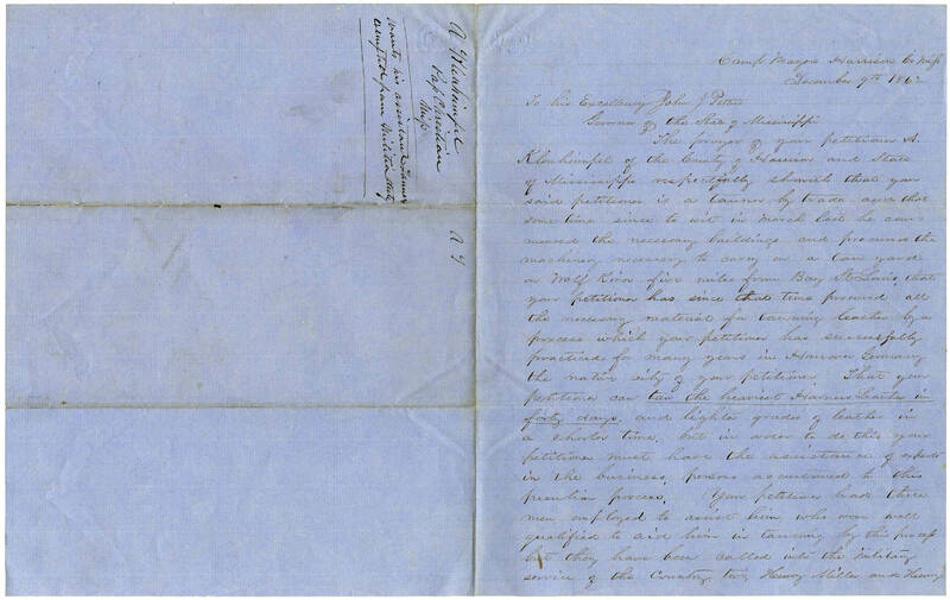 A Klouhimpel
Pass Christian
Miss
Wants his assistant Tanners
exempted from Militia duty
A G
Camp Magnor Harrison Co Miss
December 9th 1862
To his Excellency John J Pettus
Governor of the State of Mississippi
The prayer of your petitioner A.
Klouhimpel of the County of Harrison and State
of Mississippi respectfully sheweth that your
said petitioner is a tanner by trade and that
some time since to wit in March last he com-
menced the necessary buildings and procured the
machinery necessary to carry on a tan yard
on Wolf River five miles from Bay St Louis, that
your petitioner has since that time procured all
the necessary material for tanning leather by a
process which your petitioner has successfully
practiced for many years in Hanover Germany
the native city of your petitioner. That your
petitioner can tan the heaviest Harness Leather in
forty days, and lighter grades of leather in
a shorter time, but in order to do this your
petitioner must have the assistance of experts
in the business, persons accustomed to this
peculiar process. Your petitioner had three
men employed to assist him who were well
qualified to aid him in tanning by this process
but they have been called into the Military
service of the Country, two, Henry Miller and Henry